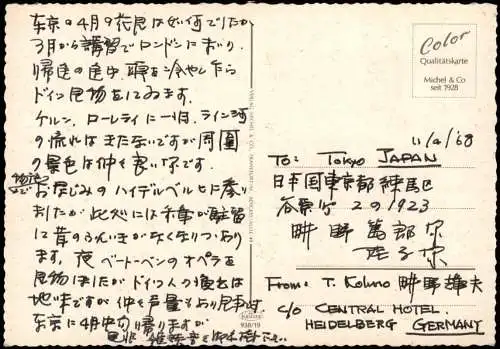 東京の4月の花見は
3月から講習でロンドンにまいり
帰途の途中、頭を冷やし乍ら
ドイツ見物をしてゐます。
ケルン、ローレライに一泊、ライン河
の流れはきたないですが周囲
の景色は仲々良い所です。
おなじみのハイデルベルヒに参り
ましたが此処には米軍が駐留
に昔のふんいきがなくなりつつあり
ます。夜ベートーベンのオペラを
見物しましたがドイツ人の
地味ですが仲々声量もあり見事です
東京に4月中旬帰りますが
Color
Qualitätskarte
Michel & Co
seit 1928
11/4/'68
To: Tokyo JAPAN
日本国東京都練馬区
谷原町 2の1923
畔野 篤郎 様
様
From: T. Kohno 畔野 雄夫
c/o CENTRAL HOTEL.
HEIDELBERG GERMANY
938/19